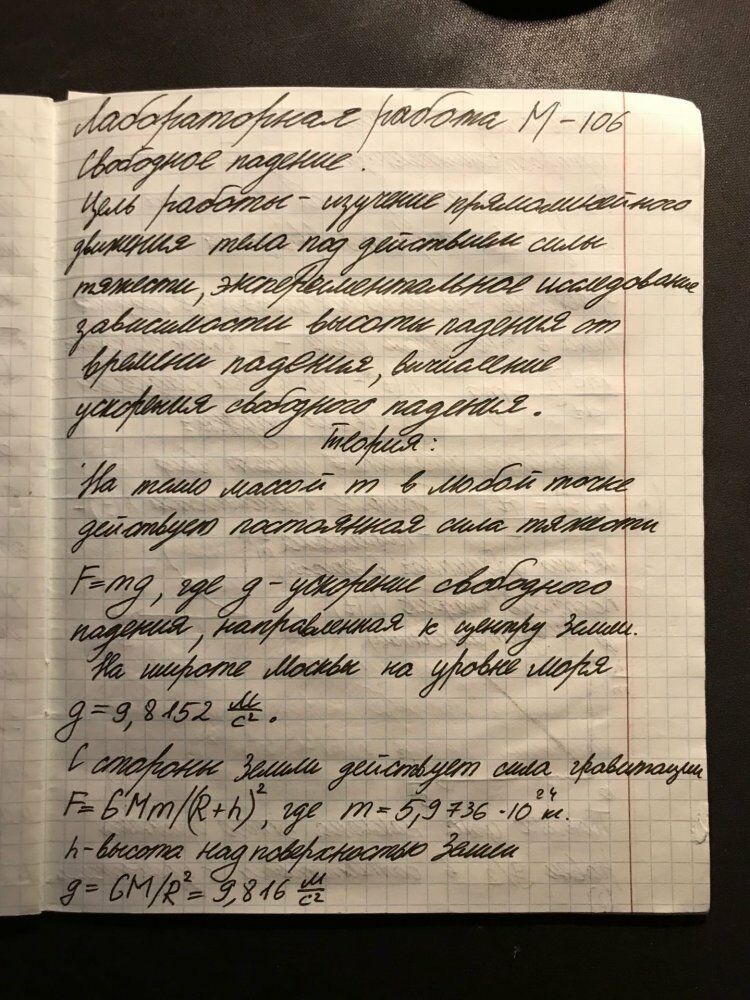 Лабораторная работа М-106
Свободное падение.
Цель работы - изучение прямолинейного
движения тела под действием силы
тяжести, экспериментальное исследование
зависимости высоты падения от
времени падения, вычисление
ускорения свободного падения.
Теория:
На тело массой m в любой точке
действует постоянная сила тяжести
F=mg, где g - ускорение свободного
падения, направленная к центру Земли.
На широте Москвы на уровне моря
g=9,8152 м/с².
С стороны Земли действует сила гравитации
F=GMm/(R+h)², где m=5,9736·10²⁴ кг.
h-высота над поверхностью Земли
g=GM/R²=9,816 м/с²